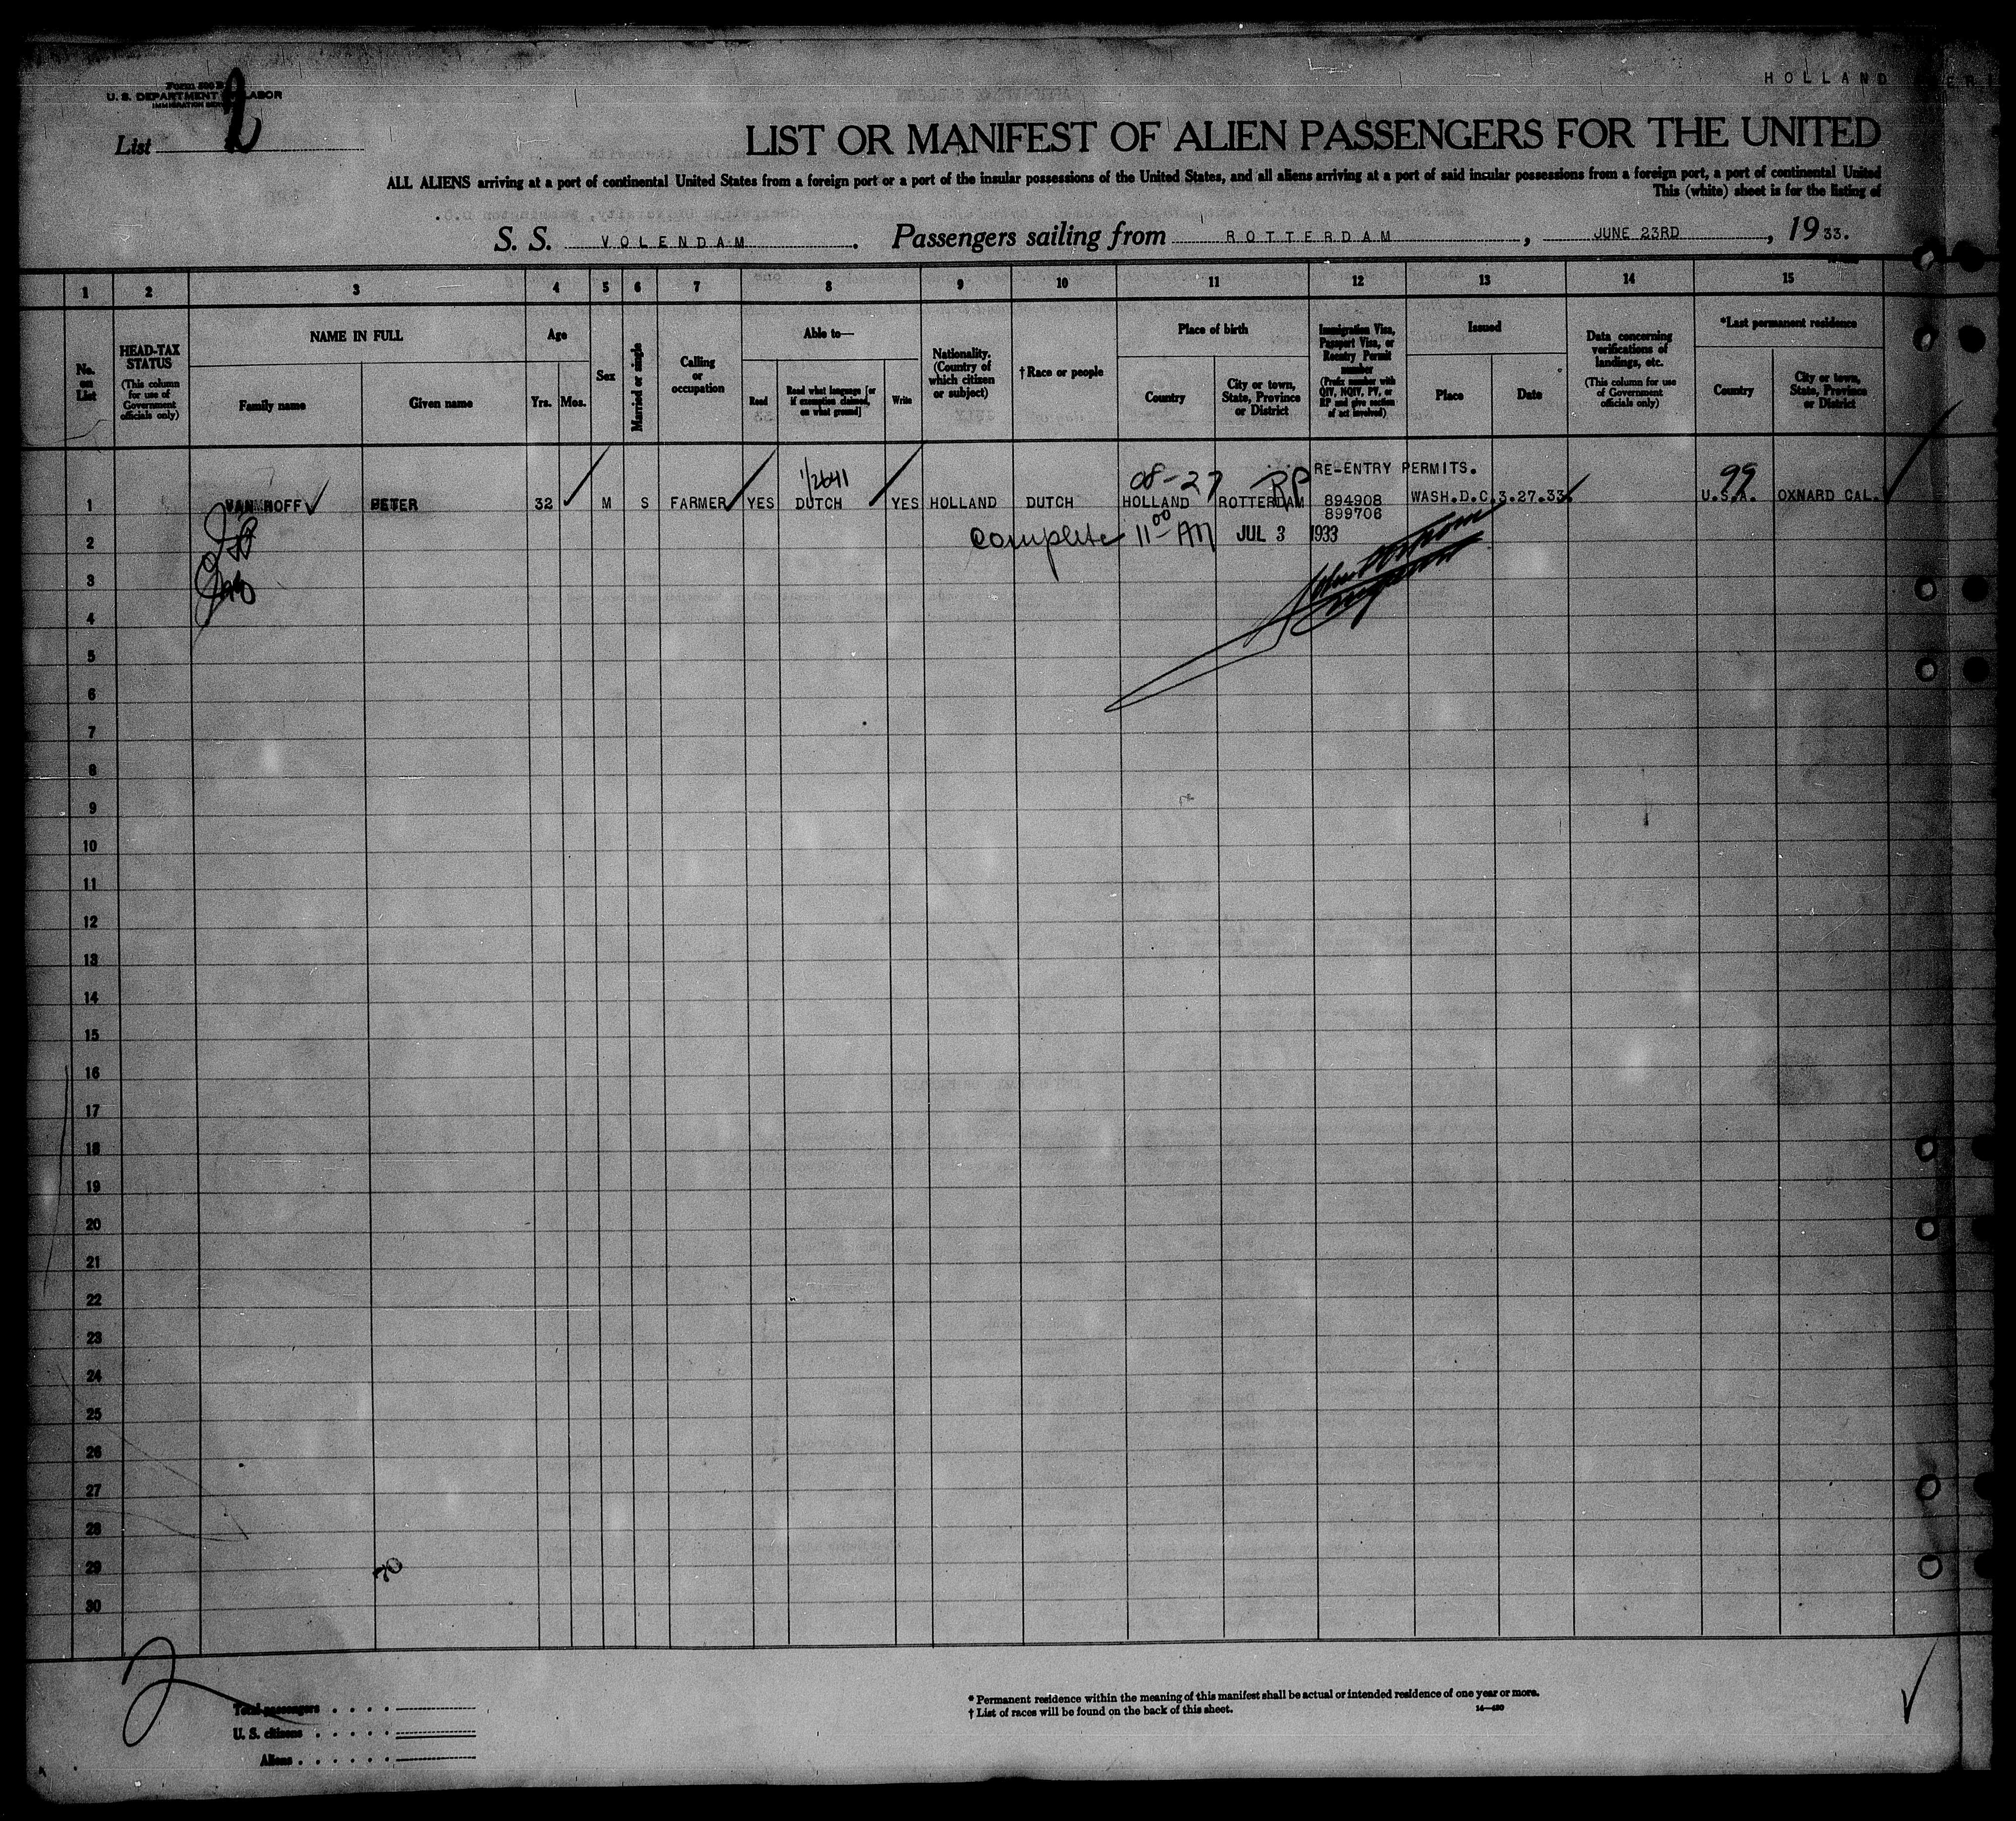 HOLLAND
Form 500 B
U. S. DEPARTMENT OF LABOR
IMMIGRATION SERVICE
List 2
LIST OR MANIFEST OF ALIEN PASSENGERS FOR THE UNITED
ALL ALIENS arriving at a port of continental United States from a foreign port or a port of the insular possessions of the United States, and all aliens arriving at a port of said insular possessions from a foreign port, a port of continental United
This (white) sheet is for the listing of
S. S. VOLENDAM. Passengers sailing from ROTTERDAM, JUNE 23RD, 1933.
1 2 3 4 5 6 7 8 9 10 11 12 13 14 15
No. on List
HEAD-TAX STATUS
(This column for use of Government officials only)
NAME IN FULL
Family name
Given name
Age
Yrs. Mos.
Sex
Married or single
Calling or occupation
Able to—
Read
Read what language [or if exemption claimed, on what ground]
Write
Nationality. (Country of which citizen or subject)
† Race or people
Place of birth
Country
City or town, State, Province or District
Immigration Visa, Passport Visa, or Reentry Permit number
(Prefix number with QIV, NQIV, PV, or RP and give section of act involved)
Issued
Place
Date
Data concerning verifications of landings, etc.
(This column for use of Government officials only)
*Last permanent residence
Country
City or town, State, Province or District
1/2641 08-27 RP RE-ENTRY PERMITS. 99
1 VAN HOFF PETER 32 M S FARMER YES DUTCH YES HOLLAND DUTCH HOLLAND ROTTERDAM 894908 WASH.D.C. 3.27.33 U.S.A. OXNARD CAL.
899706
2 Complete 11 00 AM JUL 3 1933
3
4
5
6
7
8
9
10
11
12
13
14
15
16
17
18
19
20
21
22
23
24
25
26
27
28
29
30
2
Total passengers
U. S. citizens
Aliens
* Permanent residence within the meaning of this manifest shall be actual or intended residence of one year or more.
† List of races will be found on the back of this sheet.
14—420